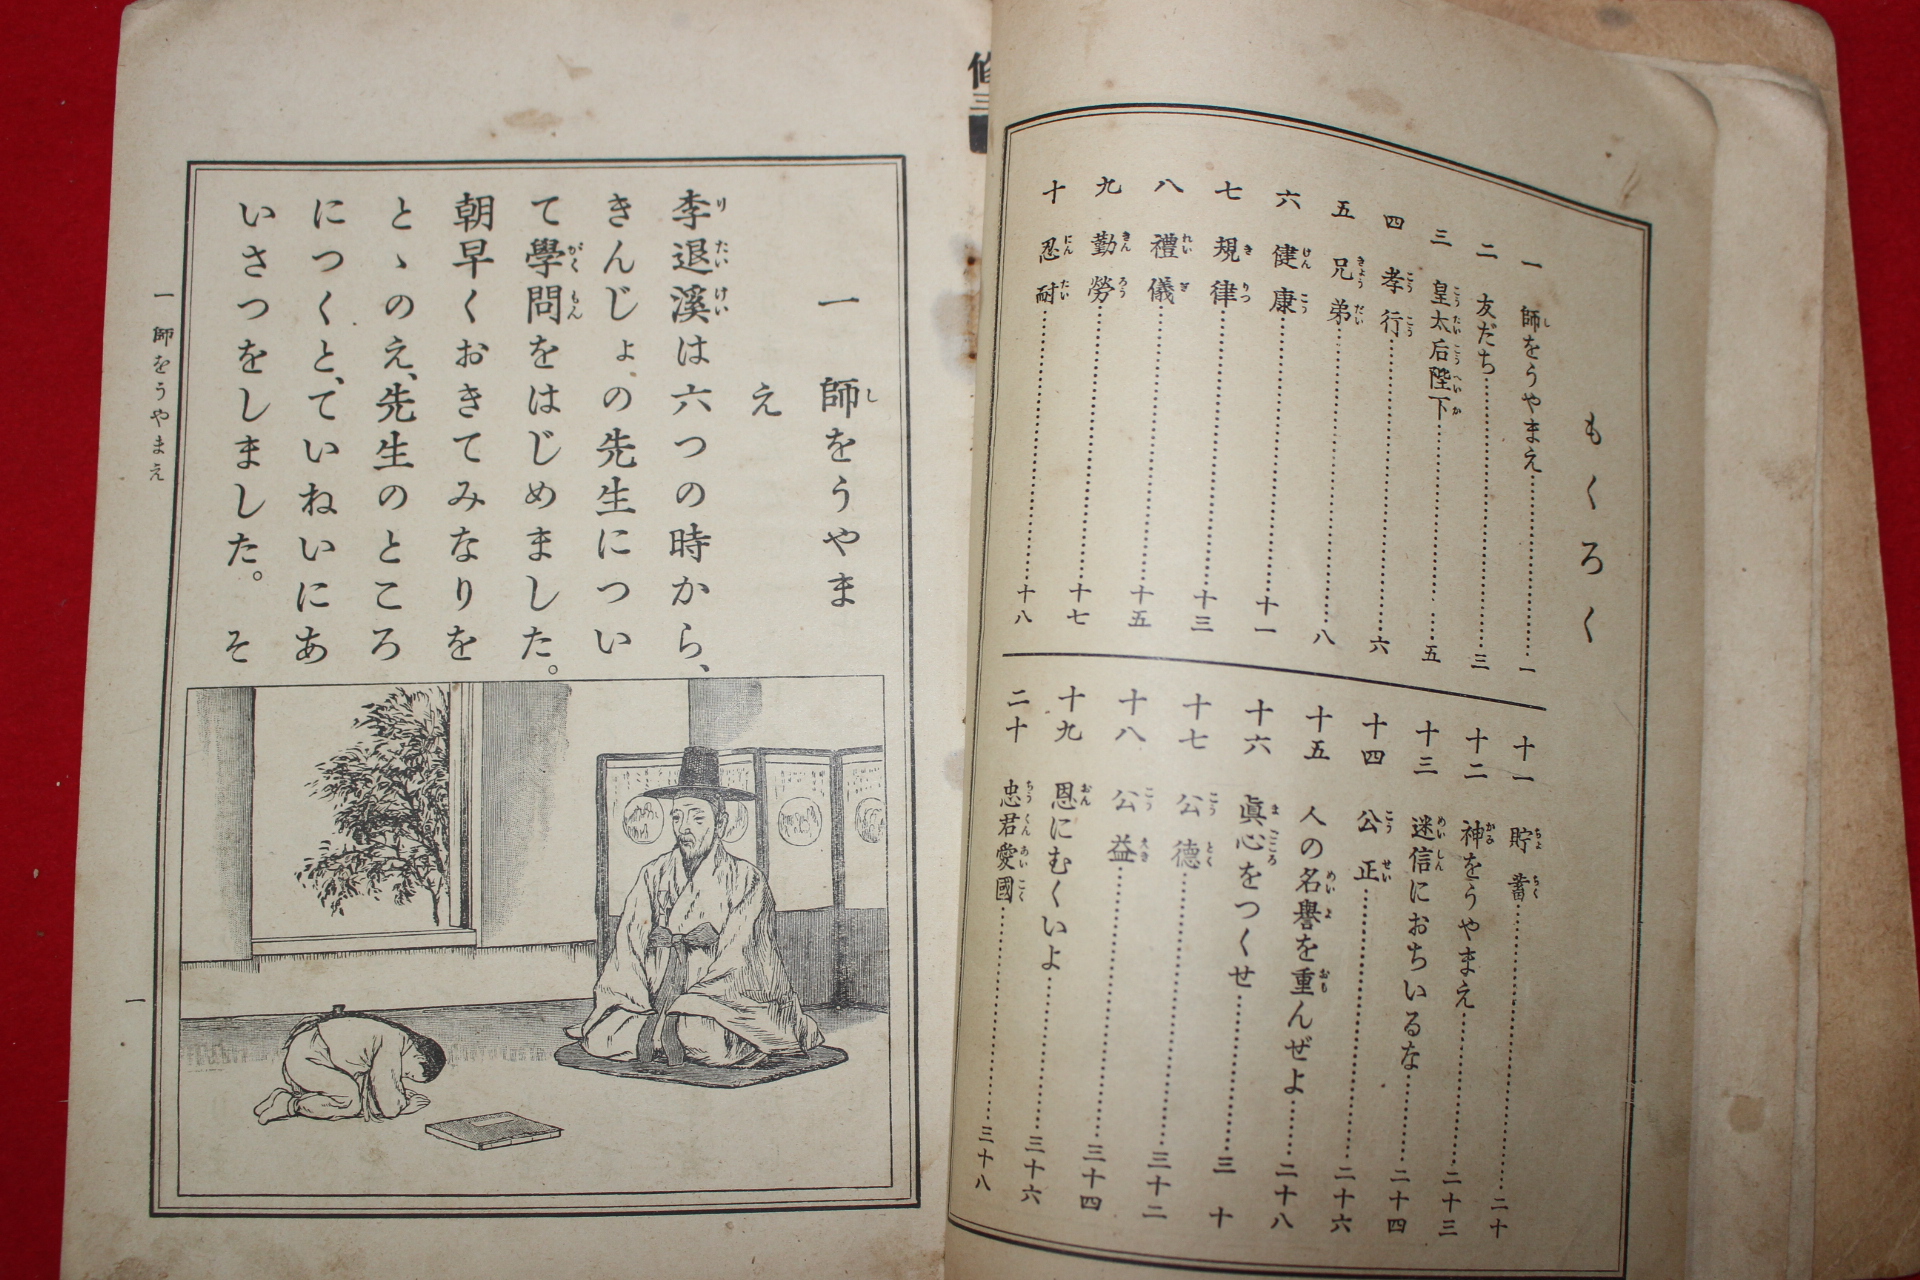 もくろく
一 師をうやまえ……一
二 友だち……三
三 皇太后陛下……五
四 孝行……六
五 兄弟……八
六 健康……十一
七 規律……十三
八 禮儀……十五
九 勤勞……十七
十 忍耐……十八
十一 貯蓄……二十
十二 神をうやまえ……二十三
十三 迷信におちいるな……二十四
十四 公正……二十六
十五 人の名譽を重んぜよ……二十八
十六 眞心をつくせ……三十
十七 公德……三十二
十八 公益……三十四
十九 恩にむくいよ……三十六
二十 忠君愛國……三十八
修
三
一 師をうやま
え
李退溪は六つの時から、
きんじょの先生につい
て學問をはじめました。
朝早くおきてみなりを
とゝのえ、先生のところ
につくと、ていねいにあ
いさつをしました。そ
一 師をうやまえ
一